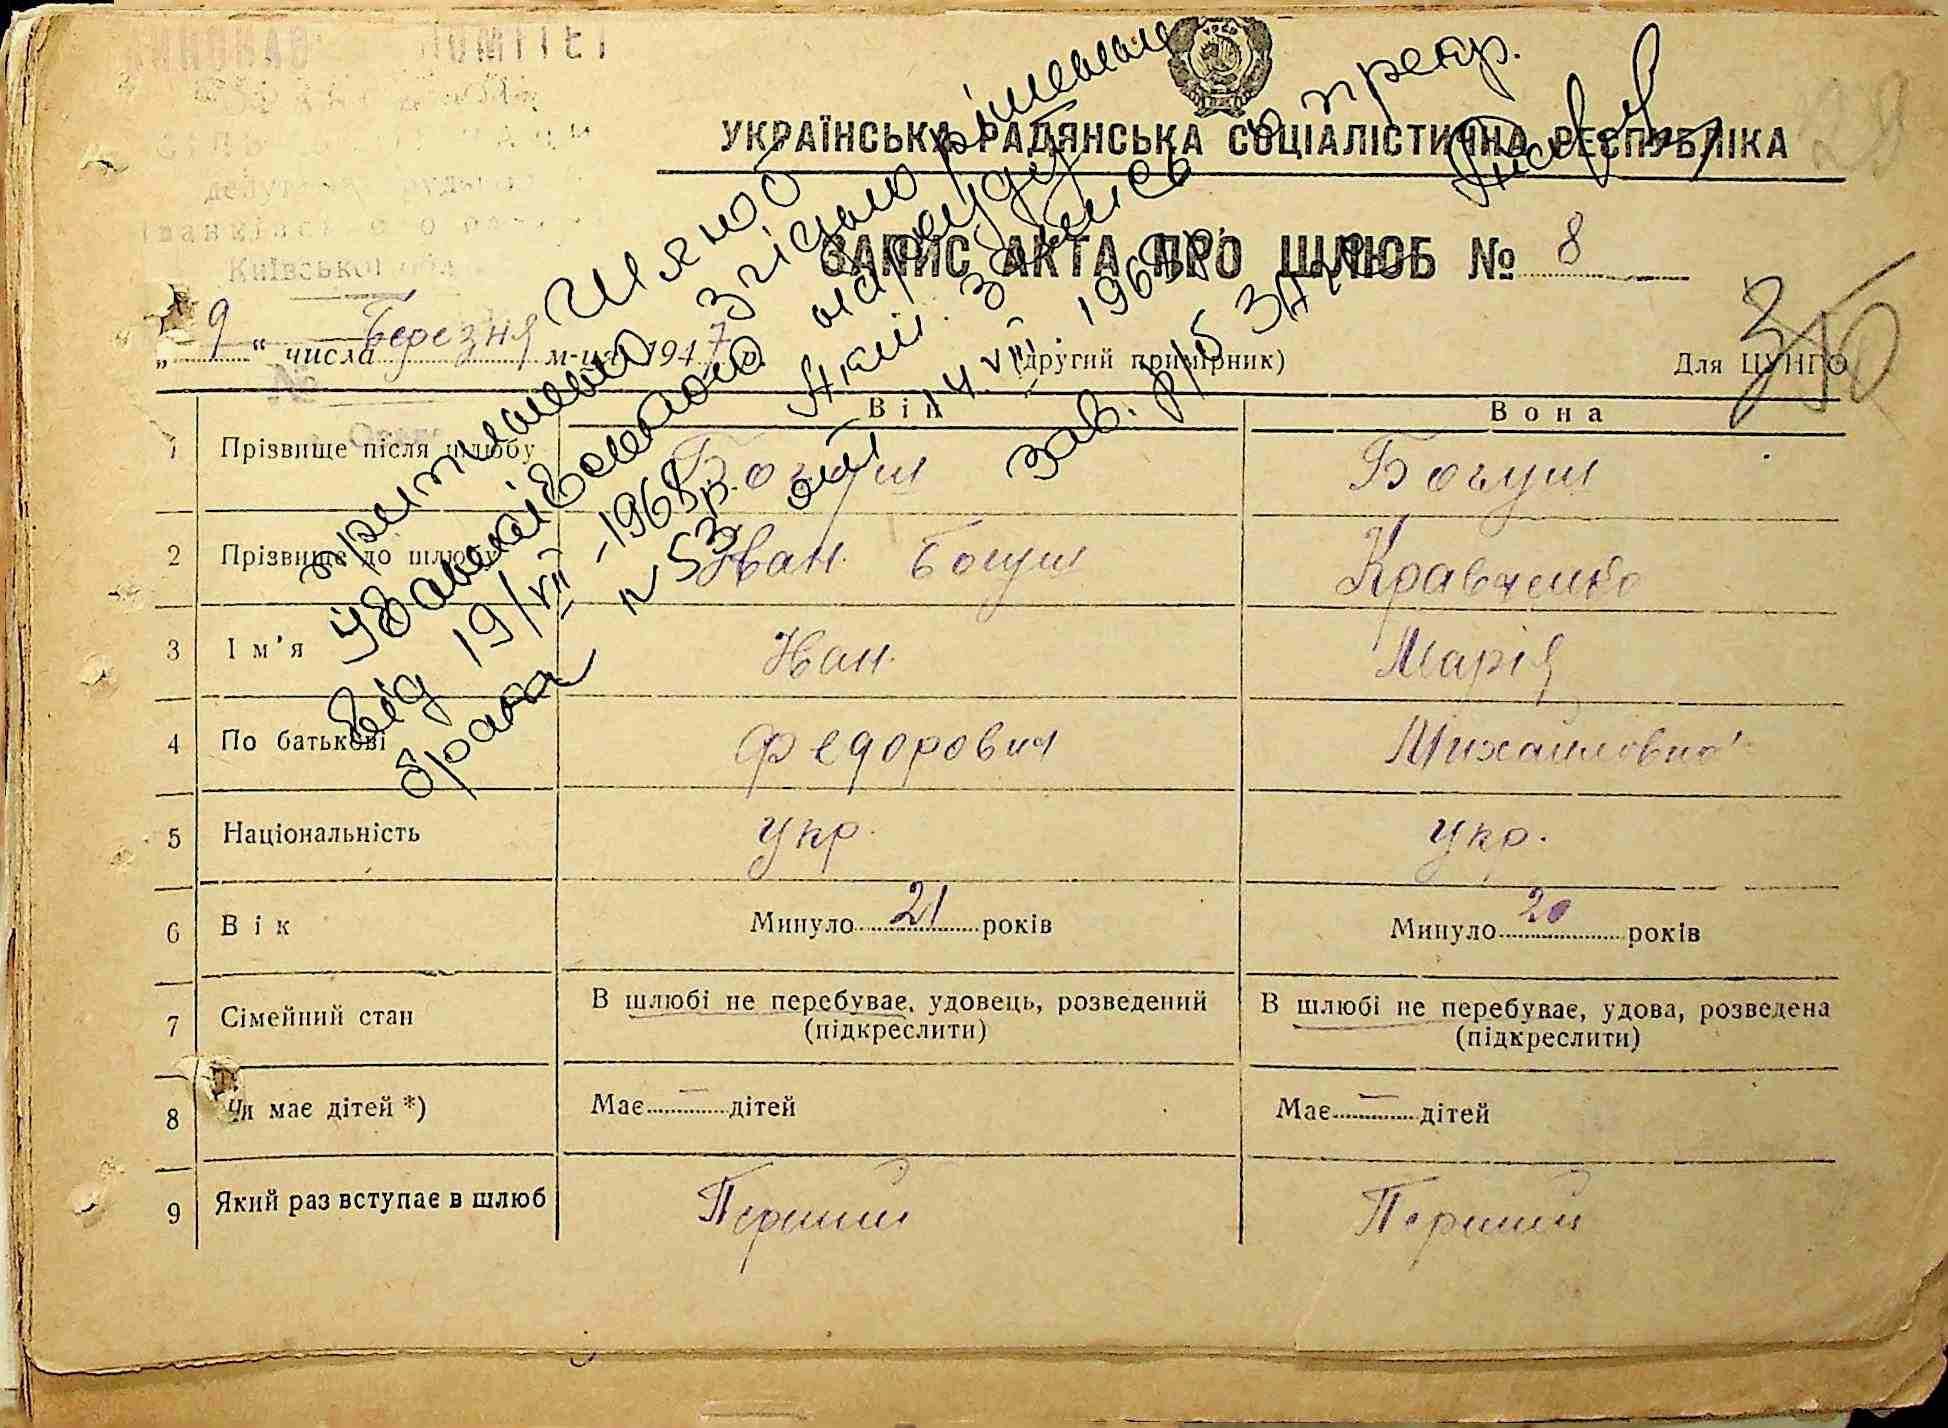 ВИКОНАВ КОМІТЕТ
депутатів трудящих
Іванківського району
Київської обл.
УКРАЇНСЬКА РАДЯНСЬКА СОЦІАЛІСТИЧНА РЕСПУБЛІКА
ЗАПИС АКТА ПРО ШЛЮБ № 8
„ 9 “ числа Березня м-ця 1947 р.
(другий примірник)
Для ЦУНГО
Шлюб
згідно рішення
Іванківського нарсуду
від 19/VII -1968р.
Акт. запись
о прекр.
N 53 от 14 VIII 1968
зав. р/б ЗАГС
Він Вона
1 Прізвище після шлюбу Богуш Богуш
2 Прізвище до шлюбу Іван Богуш Кравченко
3 Ім’я Іван Марія
4 По батькові Федорович Михайловна
5 Національність укр. укр.
6 Вік Минуло 21 років Минуло 20 років
7 Сімейний стан В шлюбі не перебуває, удовець, розведений В шлюбі не перебуває, удова, розведена
(підкреслити) (підкреслити)
8 Чи має дітей *) Має — дітей Має — дітей
9 Який раз вступає в шлюб Перший Перший